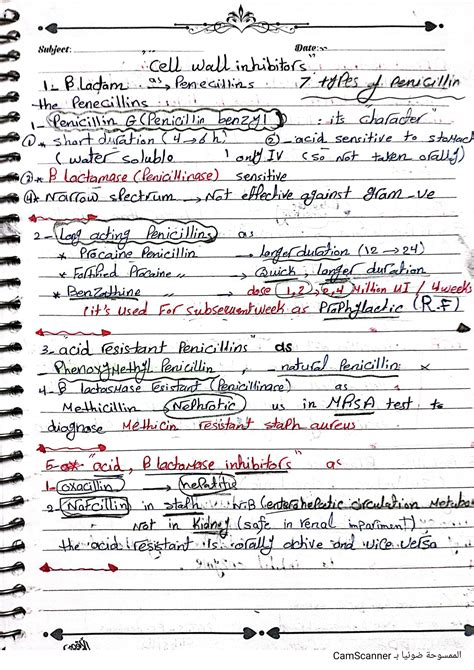 Subject: Date:
Cell wall inhibitors
1- B.Lactam as Penecillins 7 types of Penicillin
the Penecillins
1- Penicillin G (Penicillin benzyl) : its character
① * short duration (4→6 h) ② - acid sensitive to stomach
(water soluble) only IV (so not taken orally)
③* B lactamase (Penicillinase) sensitive
④* Narrow spectrum → Not effective against gram -ve
2- Long acting Penicillins as
* Procaine Penicillin → longer duration (12 → 24)
* Procaine " → Quick, longer duration
* Benzathine → dose 1,2 → 2,4 Million UI / 4 weeks
(it's used For week as Prophylactic (R.F)
3- acid resistant Penicillins as
Phenoxy Methyl Penicillin , natural Penicillin x
4- B lactamase resistant (Penicillinace) as
Methicillin → Nephrotic us in MRSA test to
diagnose Methicin resistant staph aureus
5- "acid, B lactamase inhibitors" as
1- oxacillin → hepatitic
2- Nafcillin in staph N.B (enterohepatic circulation
Not in Kidney (safe in renal impariment)
the acid resistant Is orally active and vice versa
CamScanner الممسوحة ضوئيا بـ